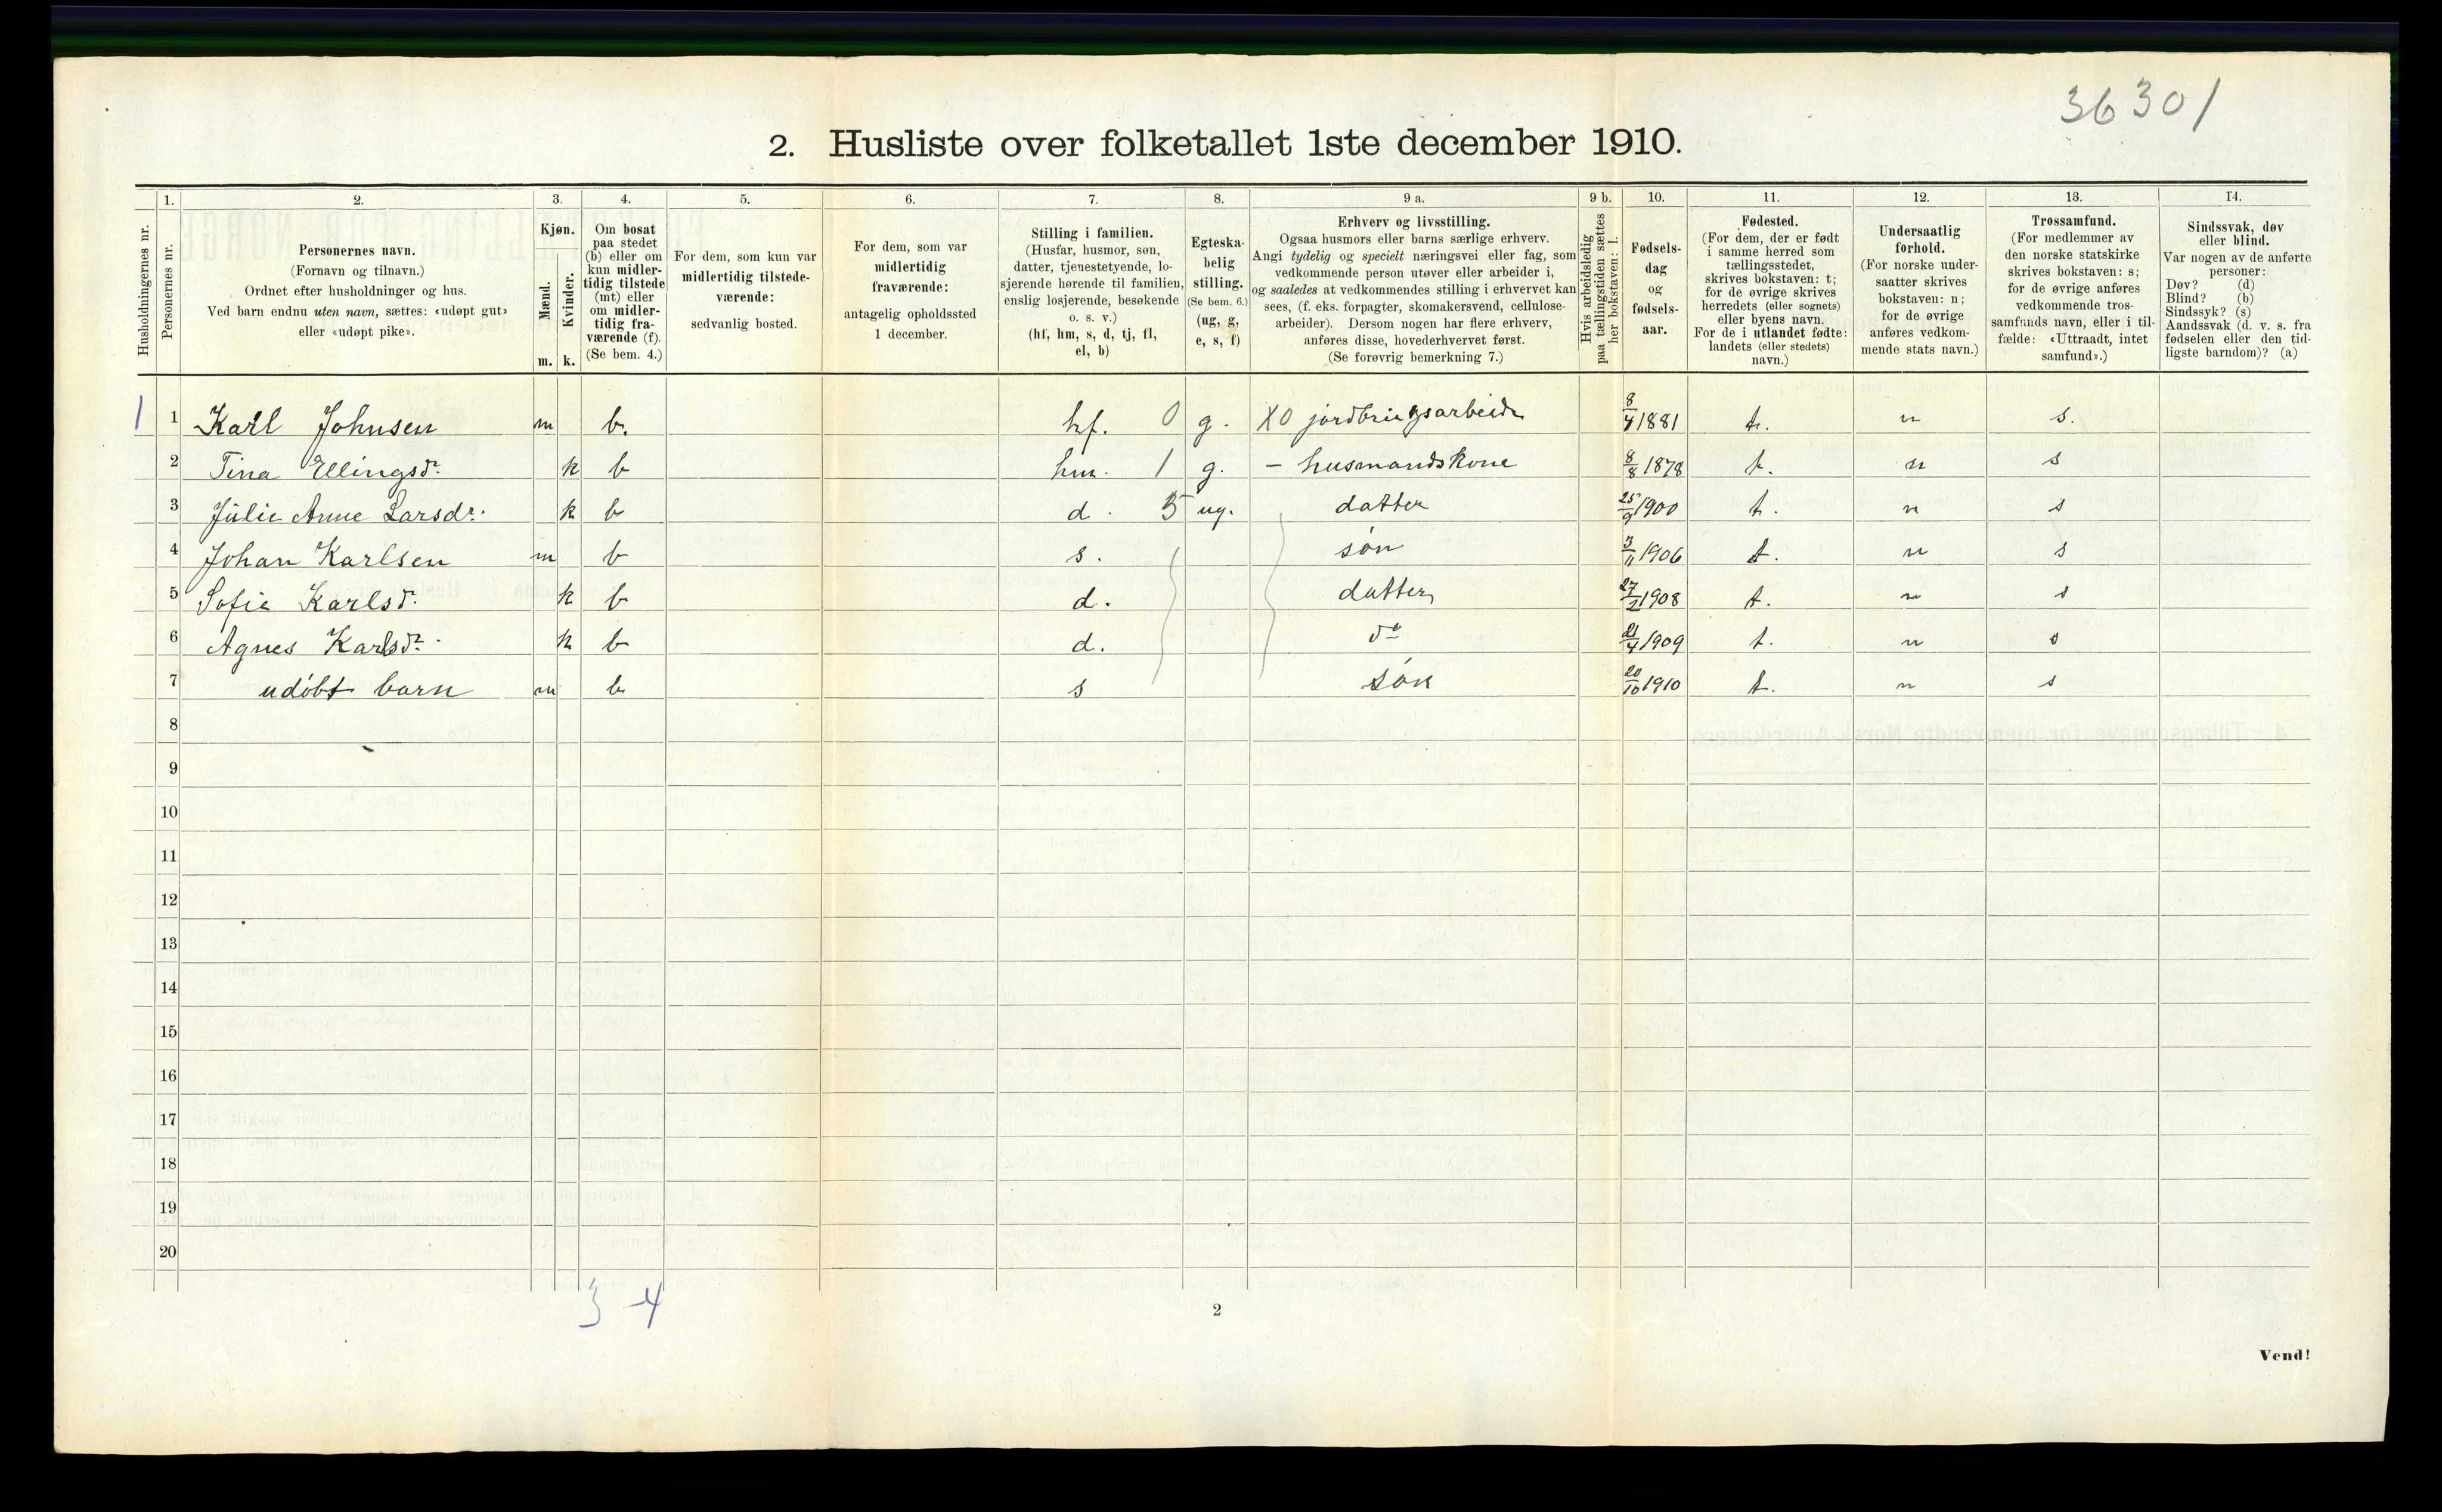 36301
2. Husliste over folketallet 1ste december 1910.
Husholdningernes nr.
1.
Personernes nr.
2.
Personernes navn.
(Fornavn og tilnavn.)
Ordnet efter husholdninger og hus.
Ved barn endnu uten navn, sættes: «udøpt gut»
eller «udøpt pike».
3.
Kjøn.
Mænd.
Kvinder.
m. k.
4.
Om bosat
paa stedet
(b) eller om
kun midler-
tidig tilstede
(mt) eller
om midler-
tidig fra-
værende (f).
(Se bem. 4.)
5.
For dem, som kun var
midlertidig tilstede-
værende:
sedvanlig bosted.
6.
For dem, som var
midlertidig
fraværende:
antagelig opholdssted
1 december.
7.
Stilling i familien.
(Husfar, husmor, søn,
datter, tjenestetyende, lo-
sjerende hørende til familien,
enslig losjerende, besøkende
o. s. v.)
(hf, hm, s, d, tj, fl,
el, b)
8.
Egteska-
belig
stilling.
(Se bem. 6.)
(ug, g,
e, s, f)
9 a.
Erhverv og livsstilling.
Ogsaa husmors eller barns særlige erhverv.
Angi tydelig og specielt næringsvei eller fag, som
vedkommende person utøver eller arbeider i,
og saaledes at vedkommendes stilling i erhvervet kan
sees, (f. eks. forpagter, skomakersvend, cellulose-
arbeider). Dersom nogen har flere erhverv,
anføres disse, hovederhvervet først.
(Se forøvrig bemerkning 7.)
9 b.
Hvis arbeidsledig
paa tællingstiden sættes
her bokstaven: l.
10.
Fødsels-
dag
og
fødsels-
aar.
11.
Fødested.
(For dem, der er født
i samme herred som
tællingsstedet,
skrives bokstaven: t;
for de øvrige skrives
herredets (eller sognets)
eller byens navn.
For de i utlandet fødte:
landets (eller stedets)
navn.)
12.
Undersaatlig
forhold.
(For norske under-
saatter skrives
bokstaven: n;
for de øvrige
anføres vedkom-
mende stats navn.)
13.
Trossamfund.
(For medlemmer av
den norske statskirke
skrives bokstaven: s;
for de øvrige anføres
vedkommende tros-
samfunds navn, eller i til-
fælde: «Uttraadt, intet
samfund».)
14.
Sindssvak, døv
eller blind.
Var nogen av de anførte
personer:
Døv? (d)
Blind? (b)
Sindssyk? (s)
Aandssvak (d. v. s. fra
fødselen eller den tid-
ligste barndom)? (a)
1 1 Karl Johnsen m b. hf. 0 g. X0 jordbrugsarbeider 8/4 1881 t. n s.
2 Tina Ellingsdr. k b hm. 1 g. – husmandskone 8/8 1878 t. n s
3 Julie Anne Larsdr. k b d. 5 ug. datter 25/9 1900 t. n s
4 Johan Karlsen m b s. søn 3/11 1906 t. n s
5 Sofie Karlsdr. k b d. datter 27/2 1908 t. n s
6 Agnes Karlsdr. k b d. do 21/4 1909 t. n s
7 udöbt barn m b s søn 20/10 1910 t. n s
8
9
10
11
12
13
14
15
16
17
18
19
20
3 4
2
Vend!